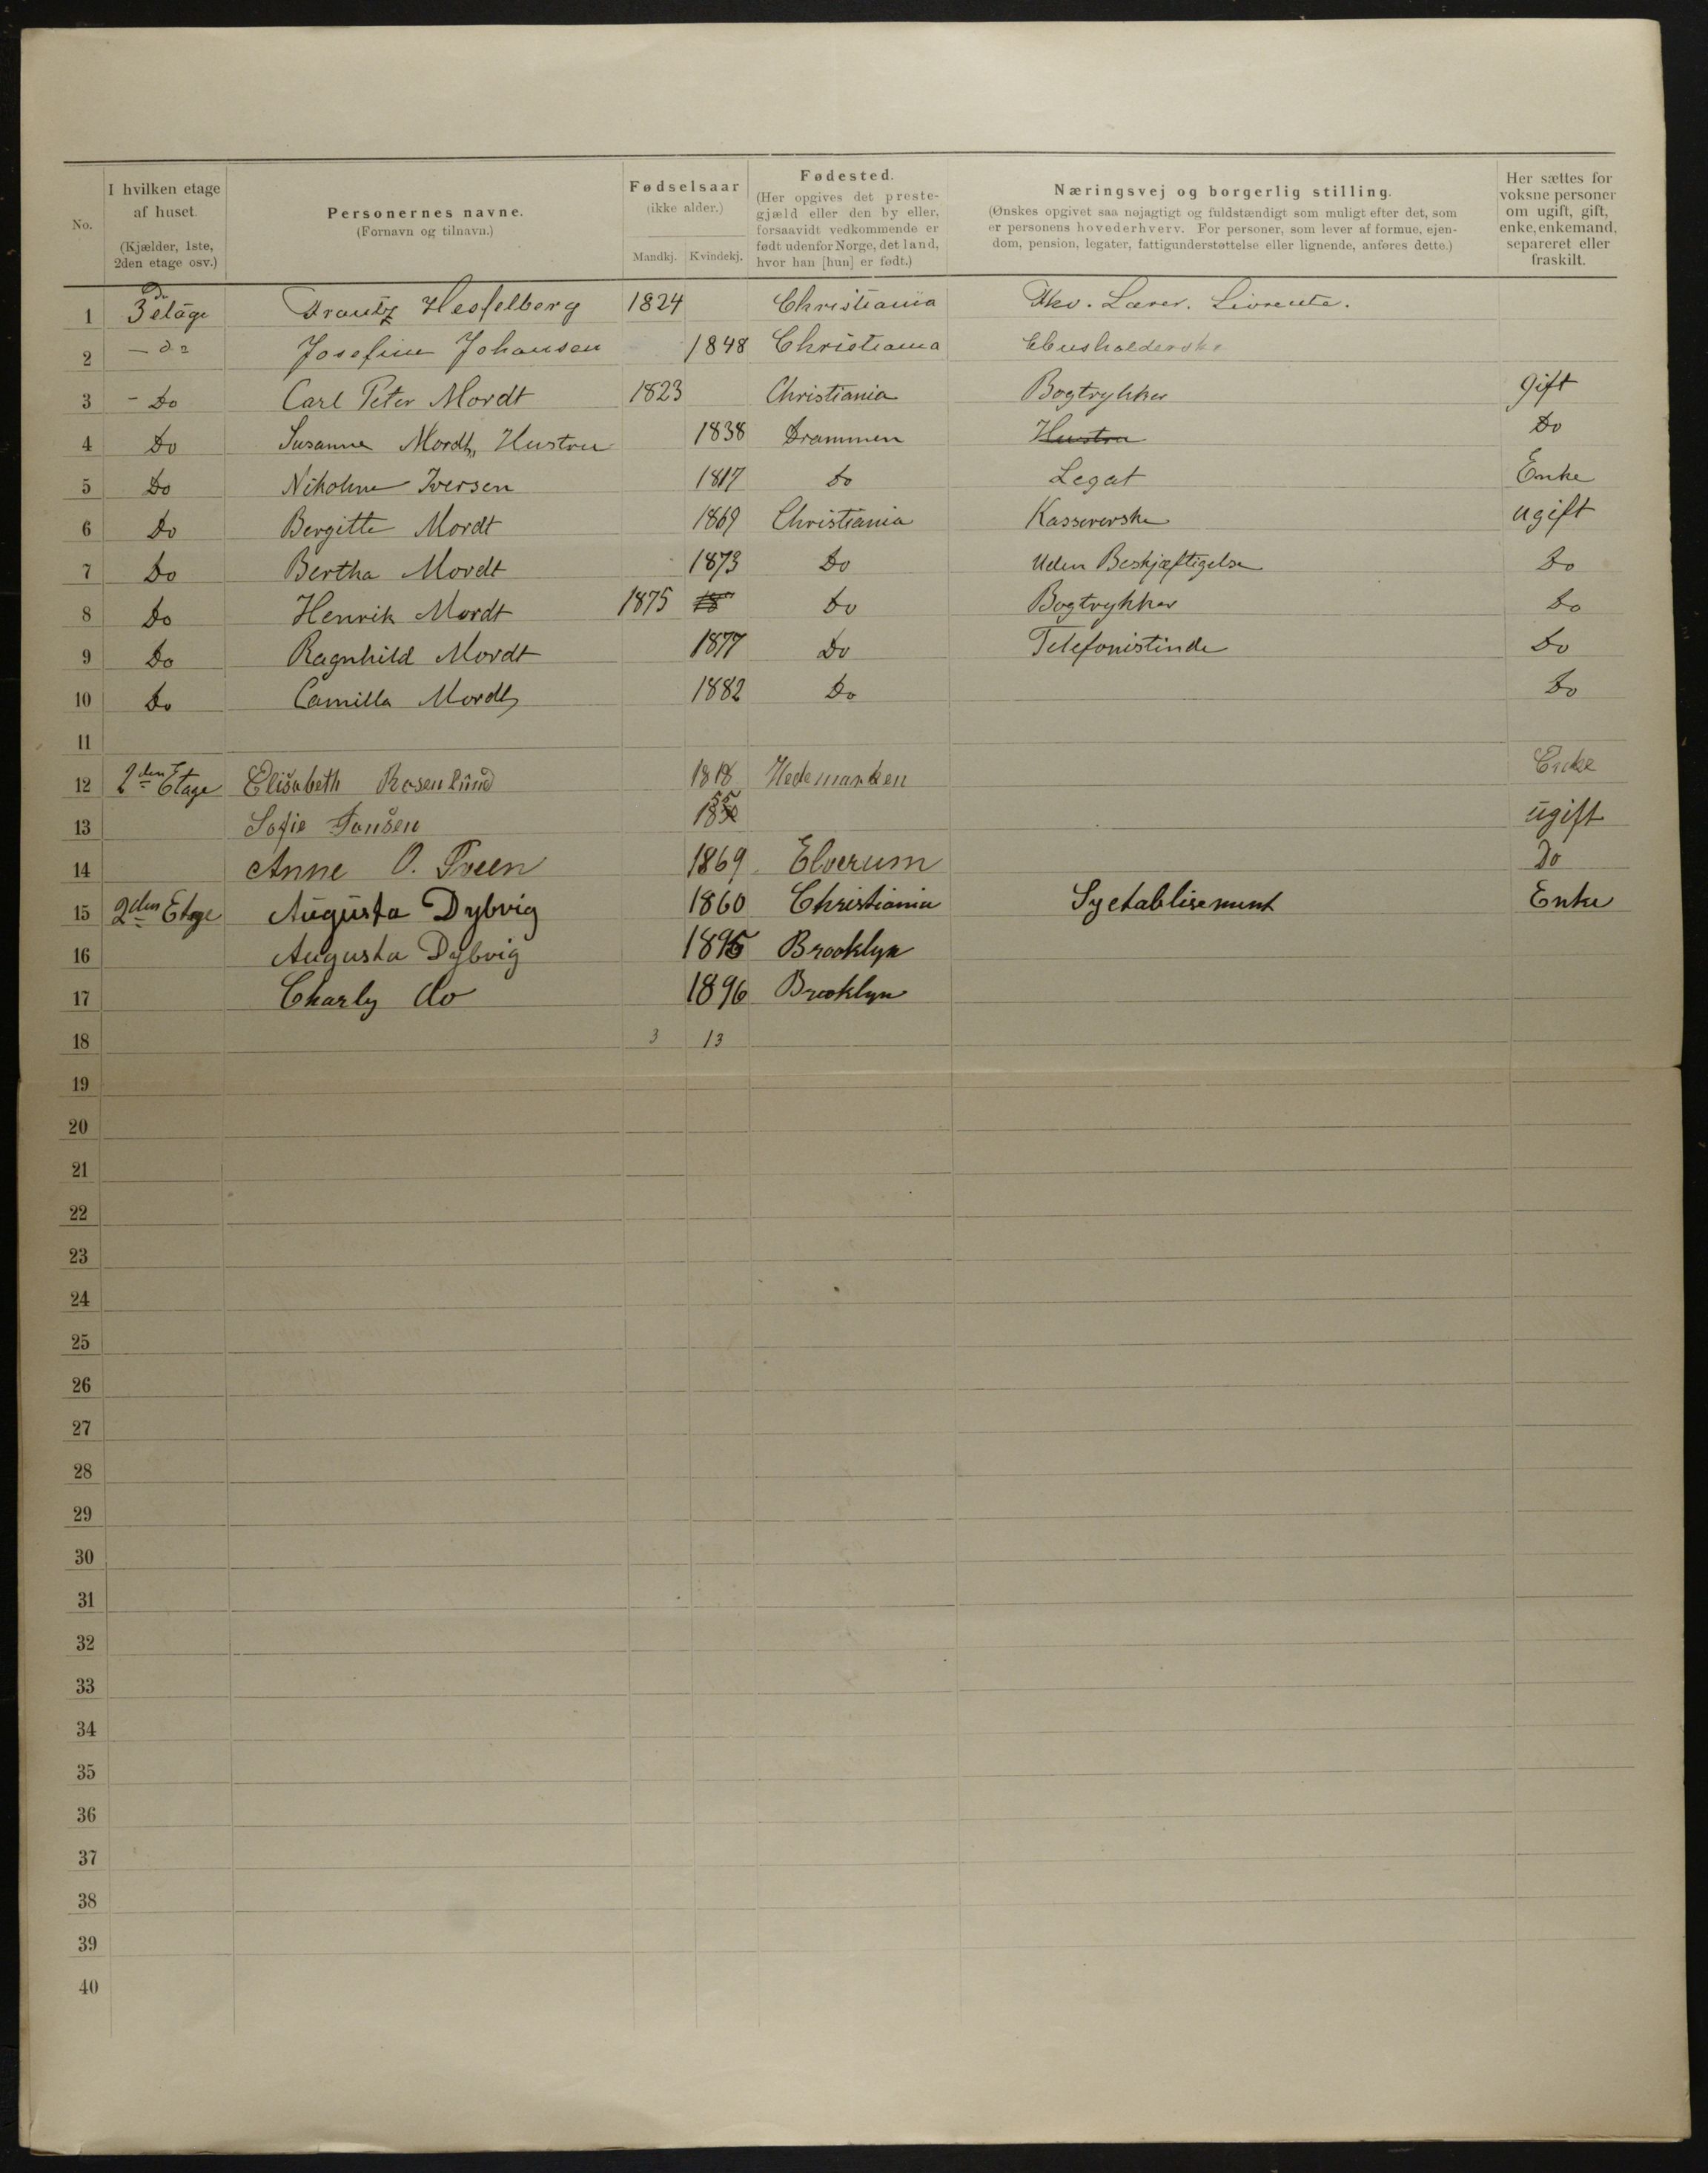 No.
I hvilken etage
af huset.
(Kjælder, 1ste,
2den etage osv.)
Personernes navne.
(Fornavn og tilnavn.)
Fødselsaar
(ikke alder.)
Mandkj. Kvindekj.
Fødested.
(Her opgives det preste-
gjæld eller den by eller,
forsaavidt vedkommende er
født udenfor Norge, det land,
hvor han [hun] er født.)
Næringsvej og borgerlig stilling.
(Ønskes opgivet saa nøjagtigt og fuldstændigt som muligt efter det, som
er personens hovederhverv. For personer, som lever af formue, ejen-
dom, pension, legater, fattigunderstøttelse eller lignende, anføres dette.)
Her sættes for
voksne personer
om ugift, gift,
enke, enkemand,
separeret eller
fraskilt.
1 3de etage Hesselberg 1824 Christiania Lærer. Livrente.
2 — do Josefine Johansen 1848 Christiania Husholderske
3 - Do Carl Peter Mordt 1823 Christiania Bogtrykker gift
4 Do Susanne Mordt, Hustru 1838 Drammen Hustru Do
5 Do Nikoline Iversen 1817 Do Legat Enke
6 Do Bergitte Mordt 1869 Christiania Kassererske ugift
7 Do Bertha Mordt 1873 Do Uden Beskjæftigelse Do
8 Do Henrik Mordt 1875 18 Do Bogtrykker Do
9 Do Ragnhild Mordt 1877 Do Telefonistinde Do
10 Do Camilla Mordt 1882 Do Do
11
12 2den Etage Elisabeth Rosenlund 1818 Hedemarken Enke
13 Sofie Jansen 1855 ugift
14 Anne O. Tveen 1869 Elverum Do
15 2den Etage Augusta Dybvig 1860 Christiania Syetablisement Enke
16 Augusta Dybvig 1895 Brooklyn
17 Charly do 1896 Brooklyn
18 3 13
19
20
21
22
23
24
25
26
27
28
29
30
31
32
33
34
35
36
37
38
39
40